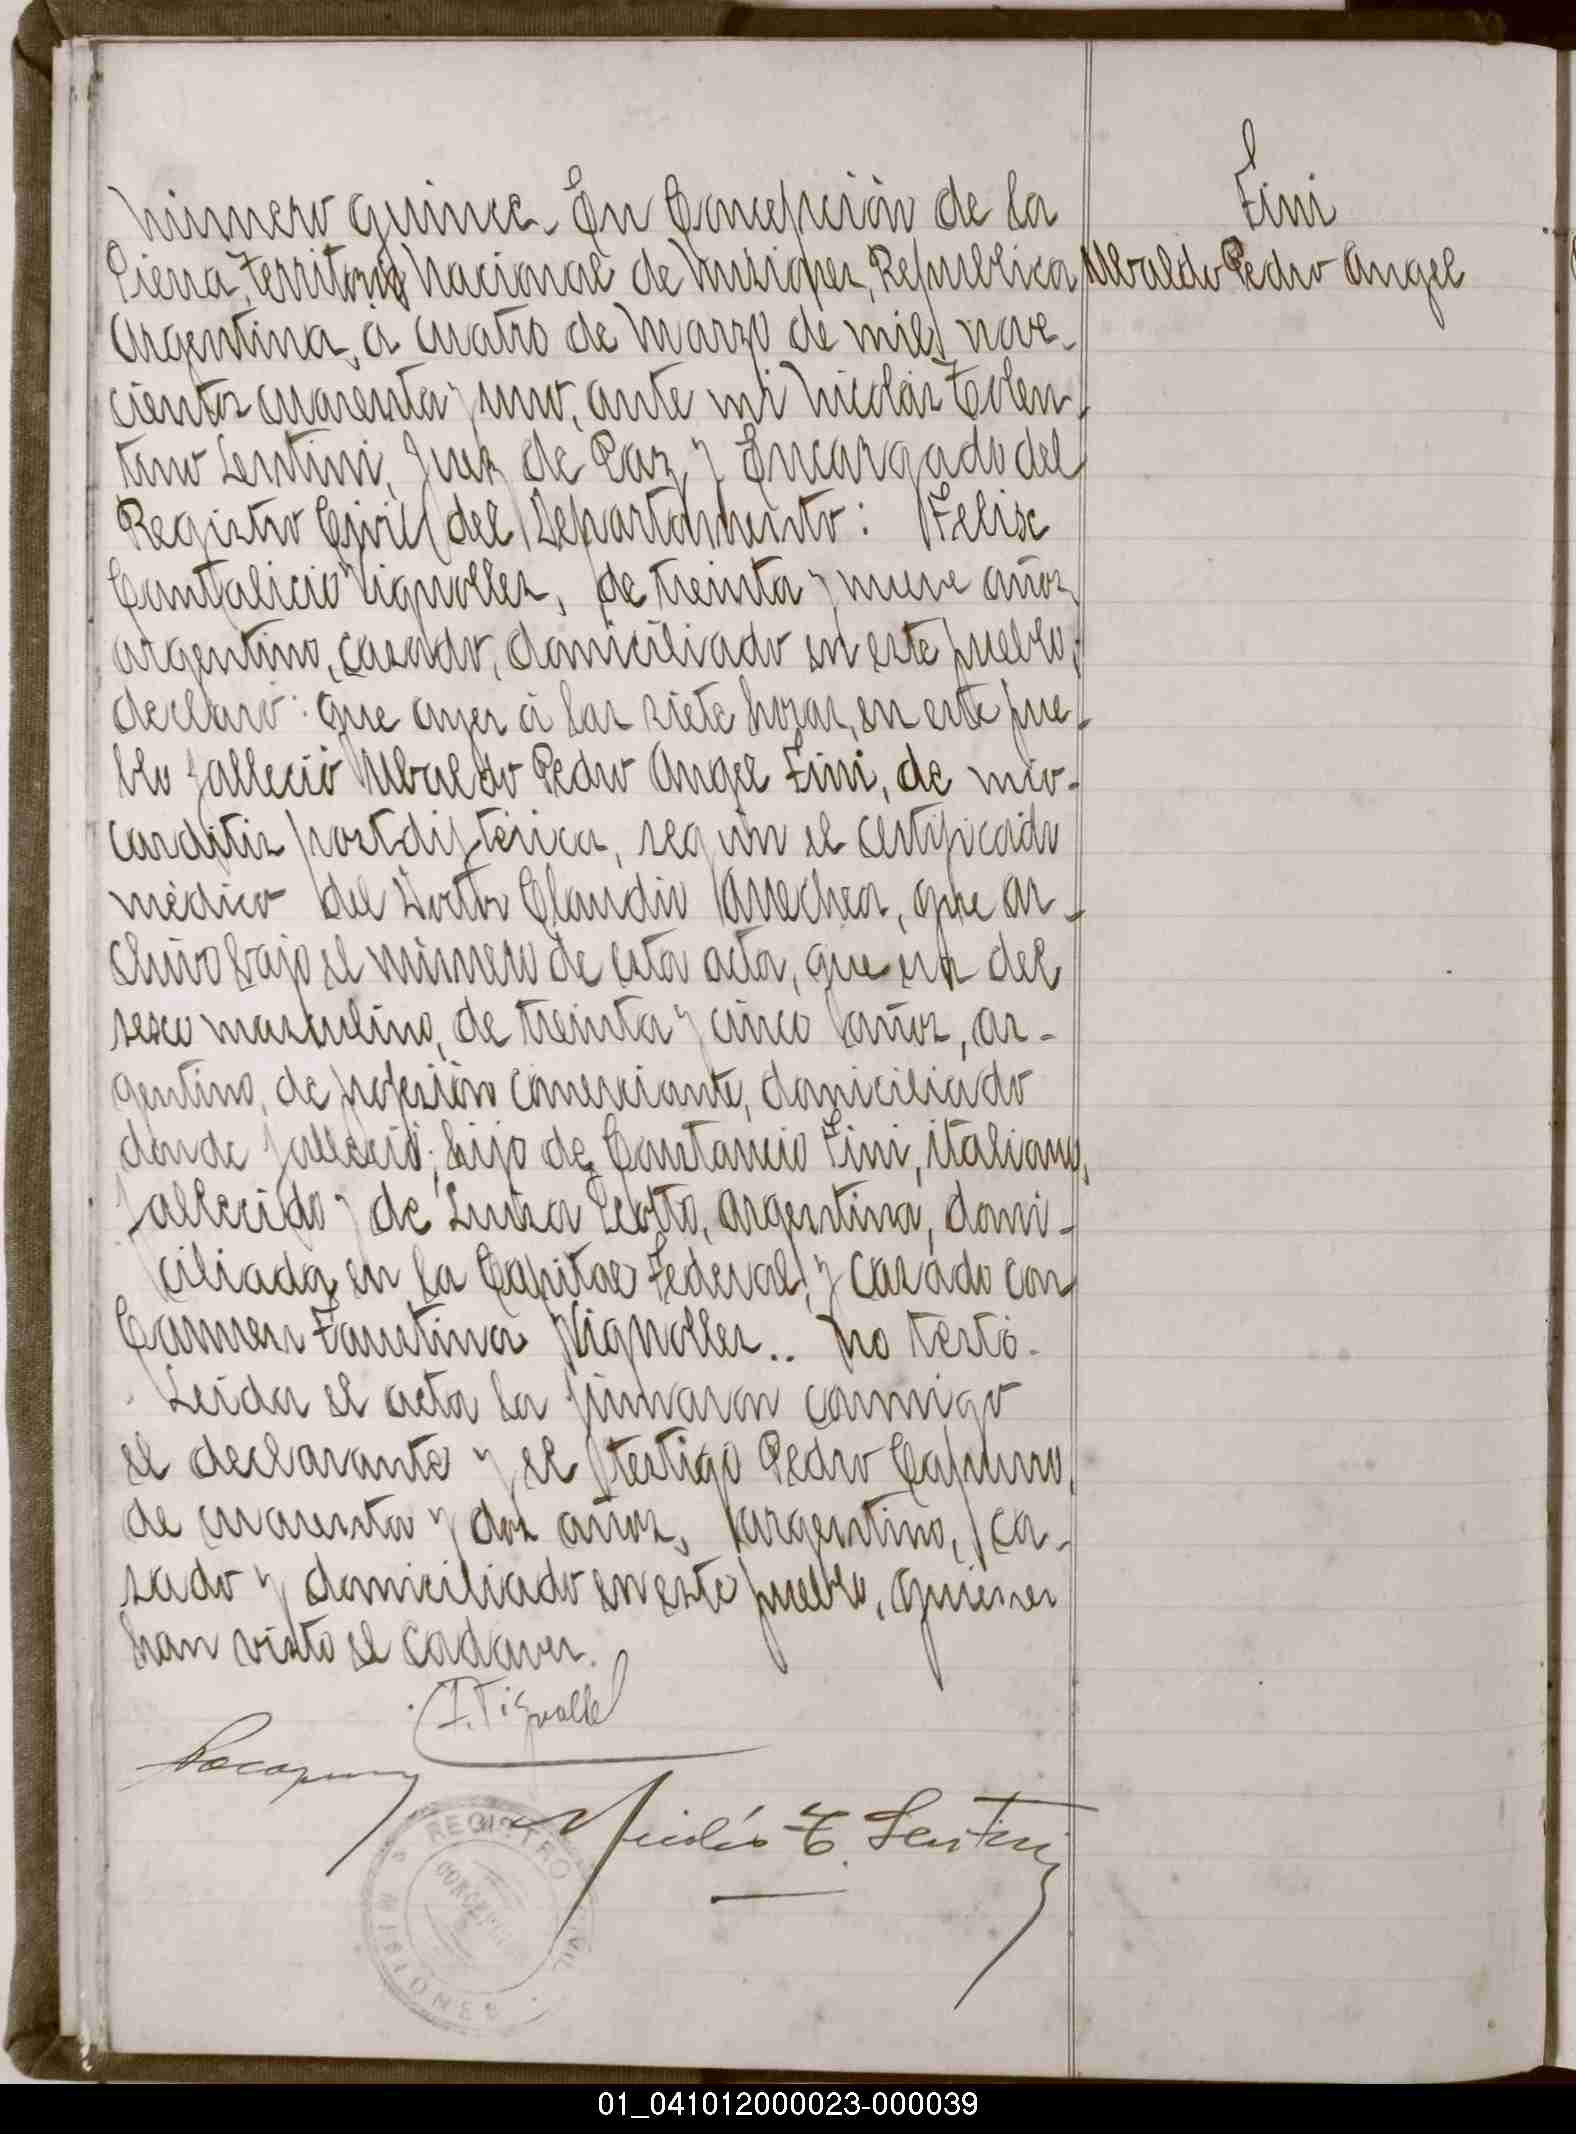 Número quince. En Concepción de la
Sierra, Territorio Nacional de Misiones, República
Argentina, á cuatro de Marzo de mil nove-
cientos cuarenta y uno, ante mi Nicolás Tolen-
tino Lentini, Juez de Paz y Encargado del
Registro Civil del Departamento: Felise
Cantalicio Vignolles, de treinta y nueve años,
argentino, casado, domiciliado en este pueblo,
declaró: que ayer á las siete horas, en este pue-
blo falleció Ubaldo Pedro Angel Fini, de mio-
carditis postdiftérica, según el certificado
médico del Doctor Claudio Arrechea, que ar-
chivo bajo el número de esta acta, que era del
sexo masculino, de treinta y cinco años, ar-
gentino, de profesión comerciante, domiciliado
donde falleció; hijo de Constancio Fini, italiano,
fallecido y de Luisa Peotto, argentina, domi-
ciliada en la Capital Federal, y casado con
Carmen Faustina Vignolles.. No testó.
Leída el acta la firmaron conmigo
el declarante y el testigo Pedro Capurro,
de cuarenta y dos años, argentino, ca-
sado y domiciliado en este pueblo, quienes
han visto el cadaver.
Nicolás T. Lentini
REGISTRO CIVIL
CONCEPCION
MISIONES
Fini
Ubaldo Pedro Angel
01_041012000023-000039